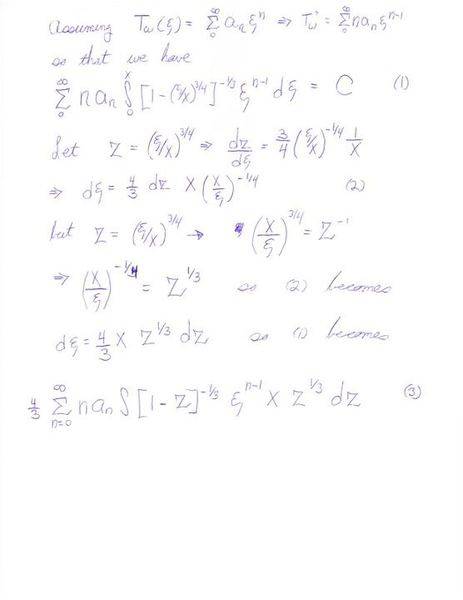 Assuming T_w(ξ) = Σ_0^∞ a_n ξ^n ⇒ T_w' = Σ_0^∞ n a_n ξ^{n-1}
so that we have
Σ_0^∞ n a_n ∫_0^x [1-(ξ/x)^{3/4}]^{-1/3} ξ^{n-1} dξ = C (1)
Let Z = (ξ/x)^{3/4} ⇒ dz/dξ = 3/4 (ξ/x)^{-1/4} 1/x
⇒ dξ = 4/3 dz x (x/ξ)^{-1/4} (2)
but Z = (ξ/x)^{3/4} → (x/ξ)^{3/4} = Z^{-1}
⇒ (x/ξ)^{-1/4} = Z^{1/3} so (2) becomes
dξ = 4/3 x Z^{1/3} dz so (1) becomes
4/3 Σ_{n=0}^∞ n a_n ∫ [1-Z]^{-1/3} ξ^{n-1} x Z^{1/3} dz (3)